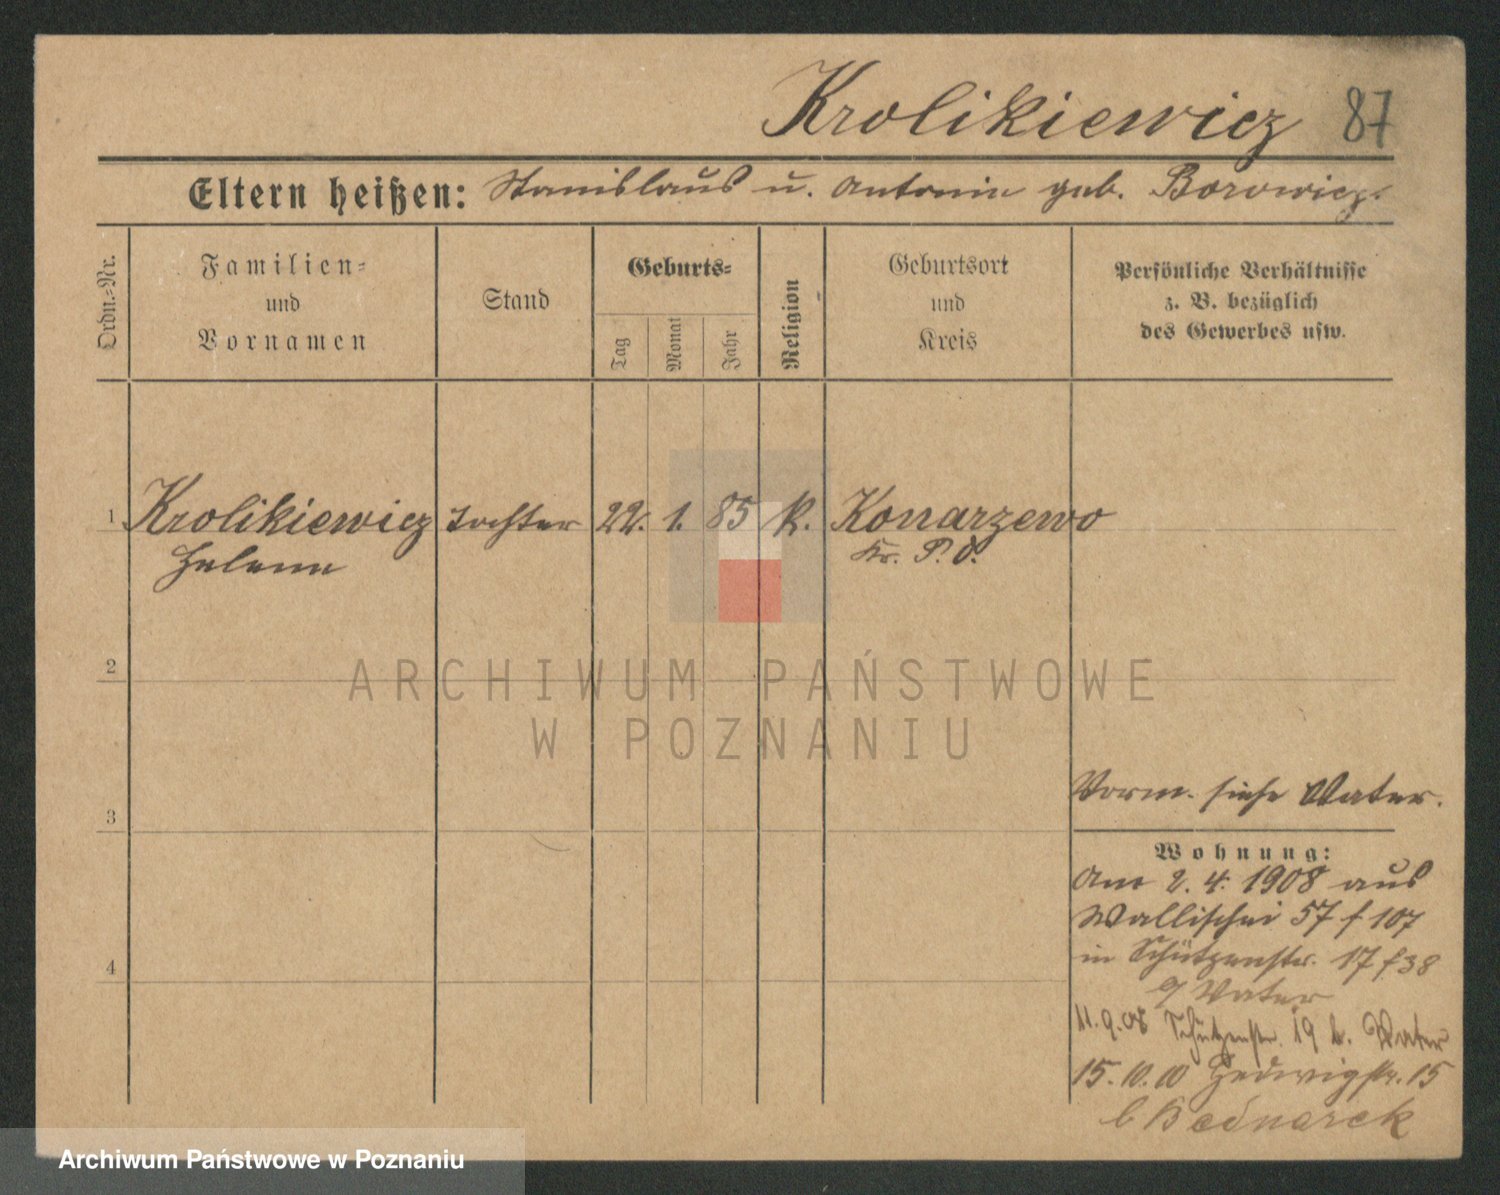 Krolikiewicz 87
Eltern heißen: Stanislaus u. Antonie geb. Borowicz.
Ordn.-Nr.
Familien-
und
Vornamen
Stand
Geburts-
Tag
Monat
Jahr
Religion
Geburtsort
und
Kreis
Persönliche Verhältnisse
z. B. bezüglich
des Gewerbes usw.
1 Krolikiewicz Tochter 22. 1. 85 k. Konarzewo
Helene Kr. P. O.
2
ARCHIWUM PAŃSTWOWE
W POZNANIU
Vorm. siehe Vater.
3
Wohnung:
Am 2. 4. 1908 aus
Wallischei 57 f 107
4
in Schützenstr. 17 f 38
Vater
11.9.08 Schützenstr. 19 b. Vater
15.10.10 Hedwigstr. 15
b Bednarek
Archiwum Państwowe w Poznaniu